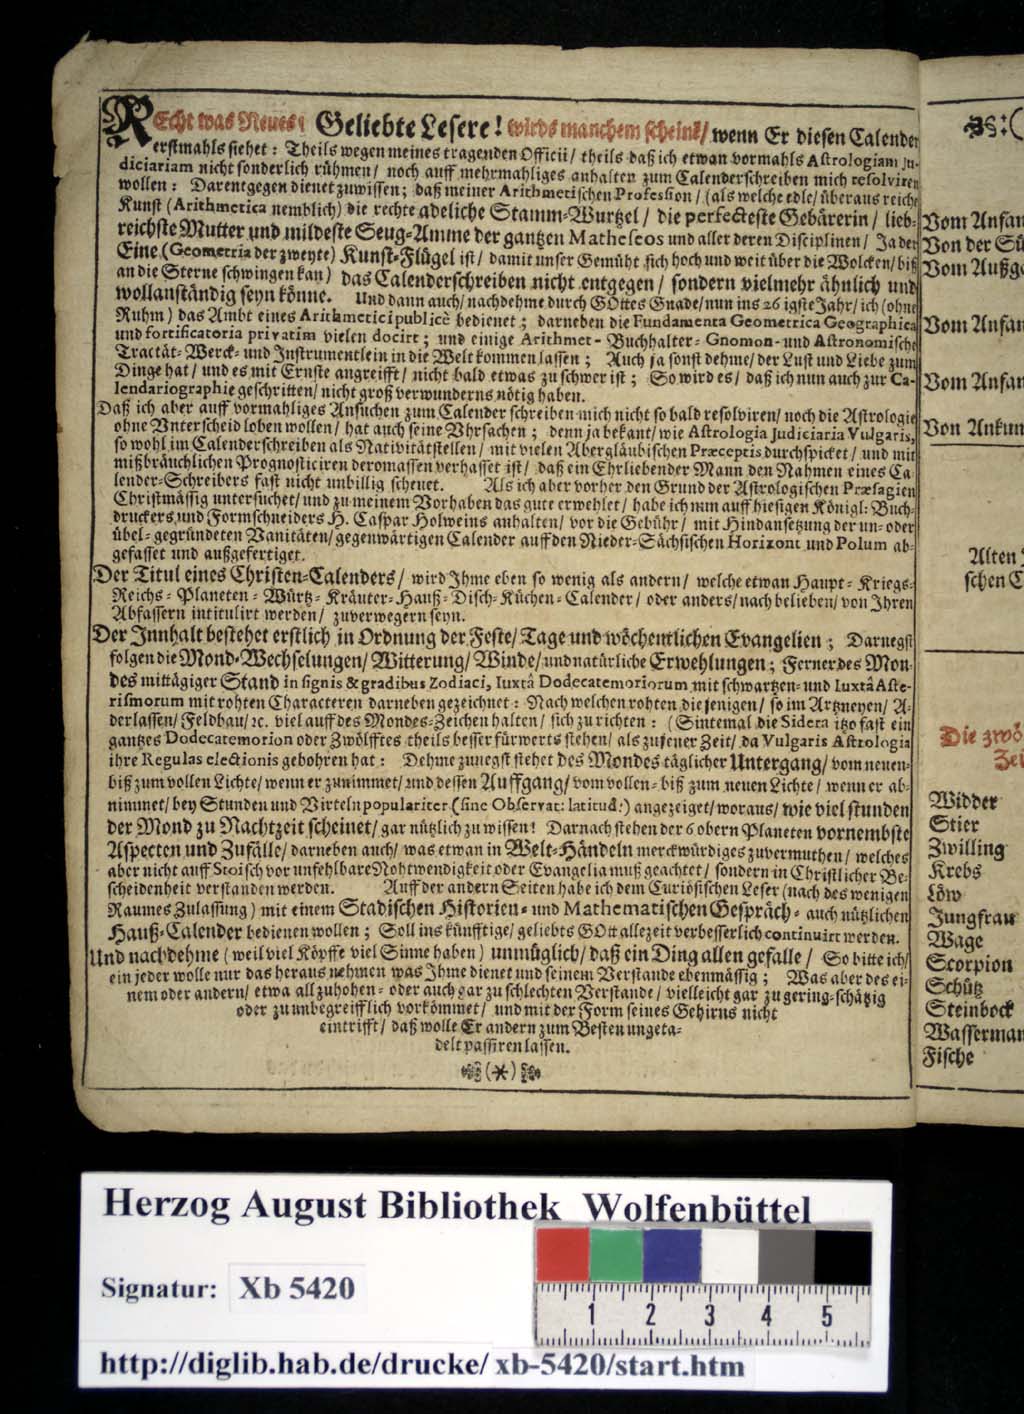 REcht was Neues! Geliebte Lesere! wirds manchem scheinē/ wenn Er diesen Calender
erstmahls siehet: Theils wegen meines tragenden Officii/ theils daß ich etwan vormahls Astrologiam Ju-
diciariam nicht sonderlich rühmen/ noch auff mehrmahliges anhalten zum Calenderschreiben mich resolviren
wollen: Darentgegen dienet zuwissen; daß meiner Arithmetischen Profession/ (als welche edle/ überaus reiche
Kunst (Arithmetica nemblich) die rechte adeliche Stamm-Wurtzel/ die perfecteste Gebärerin/ lieb-
reichste Mutter und mildeste Seug-Amme der gantzen Matheseos und aller deren Disciplinen/ Ja der
Eine (Geometria der zweyte) Kunst-Flügel ist/ damit unser Gemüht sich hoch und weit über die Wolcken/ biß
an die Sterne schwingen kan) das Calenderschreiben nicht entgegen/ sondern vielmehr ähnlich und
wollanständig seyn könne. Und dann auch/ nachdehme durch GOttes Gnade/ nun ins 26igste Jahr/ ich (ohne
Ruhm) das Ambt eines Arithmetici publicè bedienet; darneben die Fundamenta Geometrica Geographica
und fortificatoria privatim vielen docirt; und einige Arithmet- Buchhalter- Gnomon- und Astronomische
Tractät- Werck- und Instrumentlein in die Welt kommen lassen; Auch ja sonst dehme/ der Lust und Liebe zum
Dinge hat/ und es mit Ernste angreifft/ nicht bald etwas zu schwer ist; So wird es/ daß ich nun auch zur Ca-
lendariographie geschritten/ nicht groß verwunderns nötig haben.
Daß ich aber auff vormahliges Ansuchen zum Calender schreiben mich nicht so bald resolviren/ noch die Astrologie
ohne Unterscheid loben wollen/ hat auch seine Uhrsachen; denn ja bekant/ wie Astrologia Judiciaria Vulgaris,
so wohl im Calenderschreiben als Nativitätstellen/ mit vielen Abergläubischen Præceptis durchspicket/ und mit
mißbräuchlichen Prognosticiren deromassen verhasset ist/ daß ein Ehrliebender Mann den Nahmen eines Ca-
lender-Schreibers fast nicht unbillig scheuet. Als ich aber vorher den Grund der Astrologischen Præsagien
Christmässig untersuchet/ und zu meinem Vorhaben das gute erwehlet/ habe ich nun auff hiesigen Königl: Buch-
druckers und Formschneiders H. Caspar Holweins anhalten/ vor die Gebühr/ mit Hindansetzung der un- oder
übel-gegründeten Vanitäten/ gegenwärtigen Calender auff den Nieder-Sächsischen Horizont und Polum ab-
gefasset und außgefertiget.
Der Titul eines Christen-Calenders/ wird Ihme eben so wenig als andern/ welche etwan Haupt- Kriegs-
Reichs- Planeten- Würtz- Kräuter- Hauß- Disch- Küchen- Calender/ oder anders/ nach belieben/ von Ihren
Abfassern intitulirt werden/ zuverwegern seyn.
Der Innhalt bestehet erstlich in Ordnung der Feste/ Tage und wöchentlichen Evangelien; Darnegst
folgen die Mond-Wechselungen/ Witterung/ Winde/ und natürliche Erwehlungen; Ferner des Mon-
des mittägiger Stand in signis & gradibus Zodiaci, Iuxtâ Dodecatemoriorum mit schwartzen- und Iuxtâ Aste-
rismorum mit rohten Characteren darneben gezeichnet: Nach welchen rohten diejenigen/ so im Artzneyen/ A-
derlassen/ Feldbau/ ꝛc. viel auff des Mondes-Zeichen halten/ sich zu richten: (Sintemal die Sidera itzo fast ein
gantzes Dodecatemorion oder Zwölfftes theils besser fürwerts stehen/ als zu jener Zeit/ da Vulgaris Astrologia
ihre Regulas electionis gebohren hat: Dehme zunegst stehet des Mondes täglicher Untergang/ vom neuen-
biß zum vollen Lichte/ wenn er zunimmet/ und dessen Auffgang/ vom vollen- biß zum neuen Lichte/ wenn er ab-
nimmet/ bey Stunden und Virteln populariter (sine Observat: latitud:) angezeiget/ woraus/ wie viel stunden
der Mond zu Nachtzeit scheinet/ gar nützlich zu wissen! Darnach stehen der 6 obern Planeten vornembste
Aspecten und Zufälle/ darneben auch/ was etwan in Welt-Händeln merckwürdiges zuvermuthen/ welches
aber nicht auff Stoisch vor unfehlbare Nohtwendigkeit oder Evangelia muß geachtet/ sondern in Christlicher Be-
scheidenheit verstanden werden. Auff der andern Seiten habe ich dem Curiösischen Leser (nach des wenigen
Raumes Zulassung) mit einem Stadischen Historien- und Mathematischen Gespräch- auch nützlichen
Hauß-Calender bedienen wollen; Soll ins künfftige/ geliebts GOtt allezeit verbesserlich continuirt werden.
Und nachdehme (weil viel Köpffe viel Sinne haben) unmüglich/ daß ein Ding allen gefalle/ So bitte ich/
ein jeder wolle nur das heraus nehmen was Ihme dienet und seinem Verstande ebenmässig; Was aber des ei-
nem oder andern/ etwa all zu hohen- oder auch gar zu schlechten Verstande/ vielleicht gar zu gering-schätzig
oder zu unbegreifflich vorkömmet/ und mit der Form seines Gehirns nicht
eintrifft/ daß wolle Er andern zum Besten ungeta-
delt passiren lassen.
(*)
Vom Anfan
Von der Sü
Vom Außge
Vom Anfan
Vom Anfan
Von Ankun
Alten
schen C
Die zwö
Zei
Widder
Stier
Zwilling
Krebs
Löw
Jungfrau
Wage
Scorpion
Schütz
Steinbock
Wasserman
Fische
Herzog August Bibliothek Wolfenbüttel
Signatur: Xb 5420
1 2 3 4 5
http://diglib.hab.de/drucke/xb-5420/start.htm